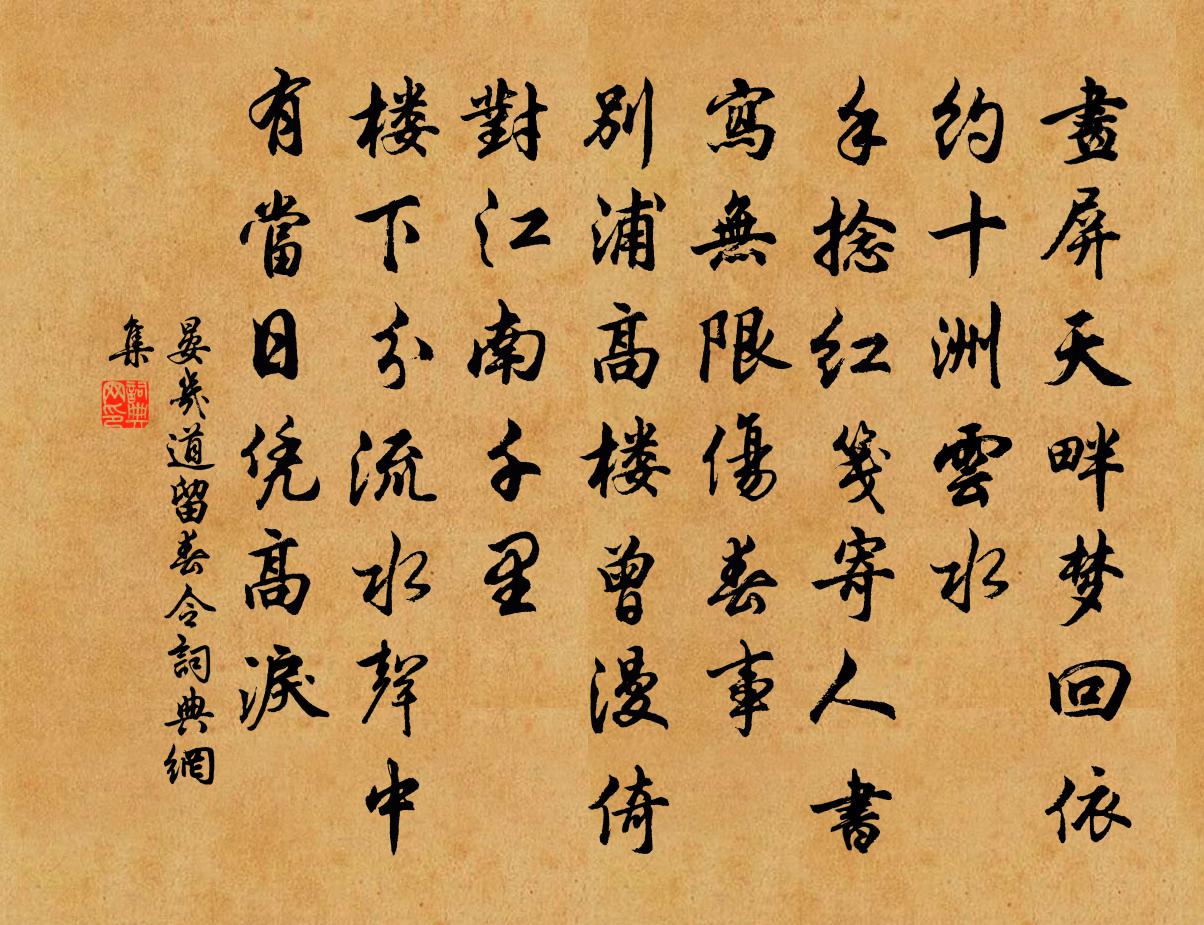 畫屏天畔梦回依
約十洲雲水
手捻红箋寄人書
寫無限傷春事
別浦高楼曾漫倚
對江南千里
楼下分流水聲中
有當日凭高淚
晏幾道留春令詞典網
集
詞典
网印